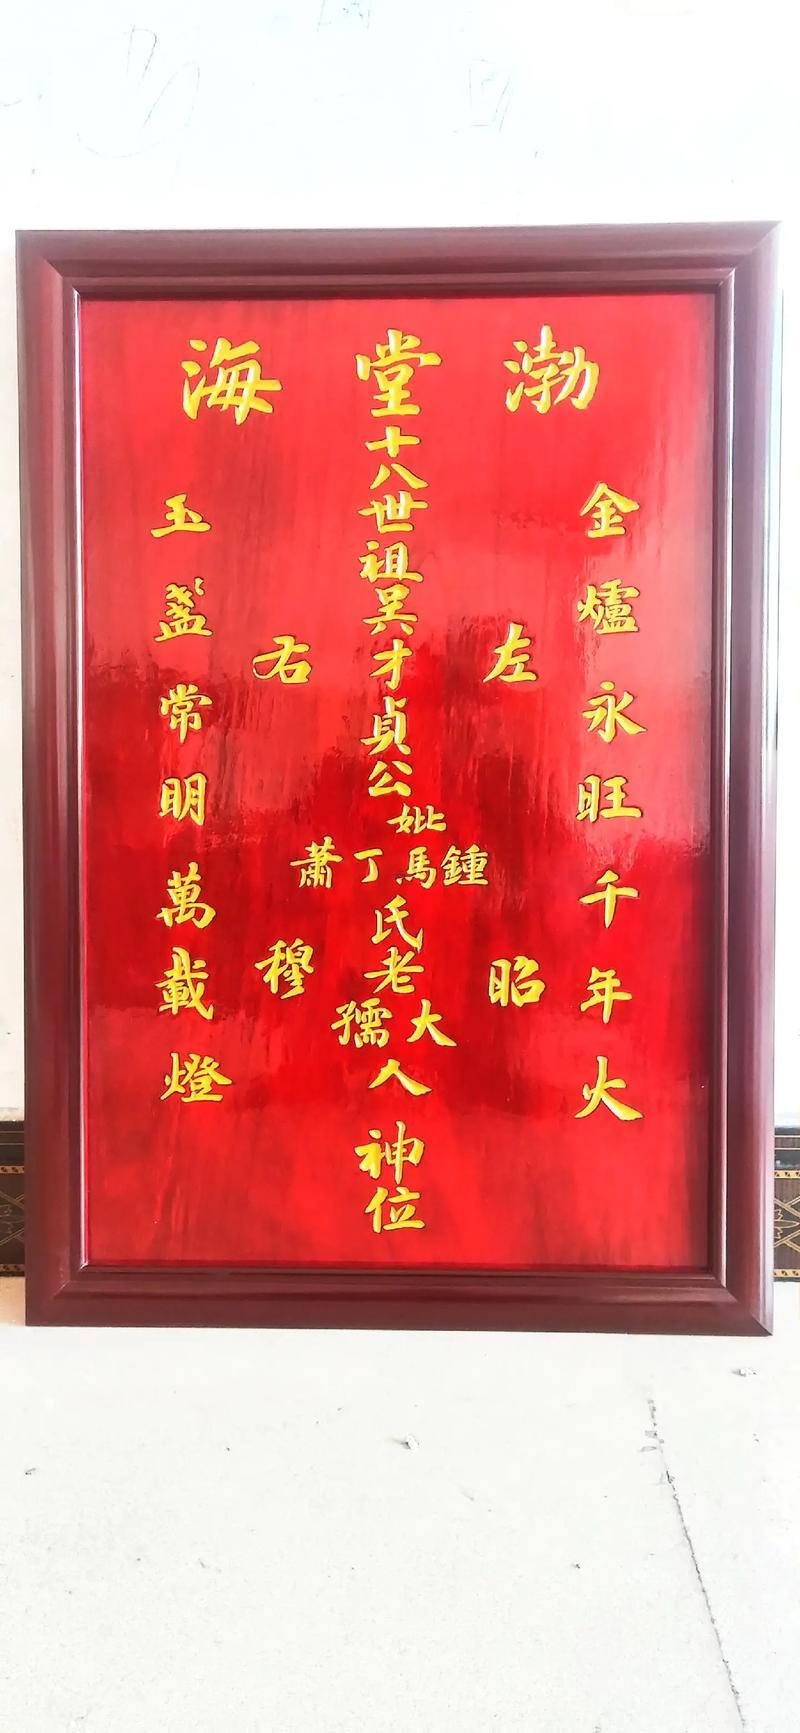 渤堂海
金爐永旺千年火
左昭
十八世祖吳才貞公
妣
鍾馬丁蕭
氏老
大孺
人
神位
右穆
玉盞常明萬載燈